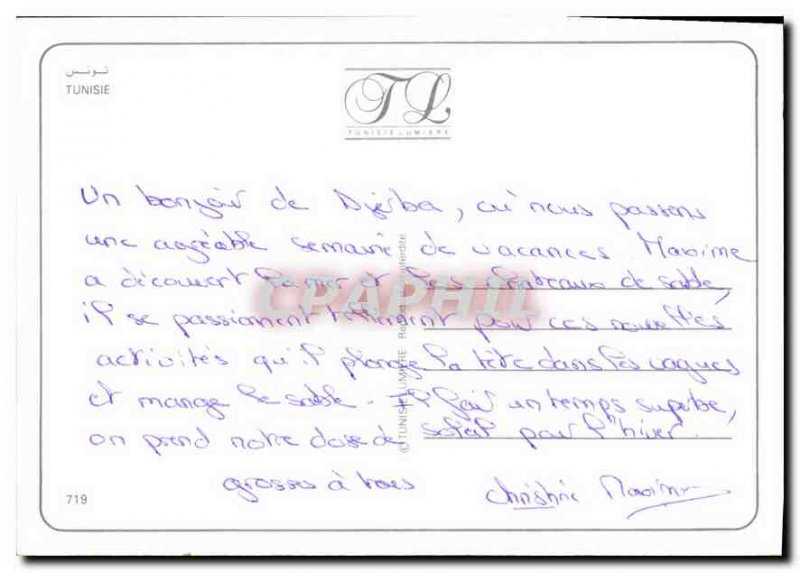 تونس
TUNISIE
TL
TUNISIE LUMIERE
Un bonjour de Djerba, où nous passons
une agréable semaine de vacances. Maxime
a découvert la mer et les chateaux de sable,
il se passionnent tellement pour ces nouvelles
activités qu'il plonge la tête dans les vagues
et mange le sable. Il fait un temps superbe,
on prend notre dose de soleil pour l'hiver.
grosses à tous
Christine Maxime
719
© TUNISIE LUMIERE
interdite
CPAPHIL